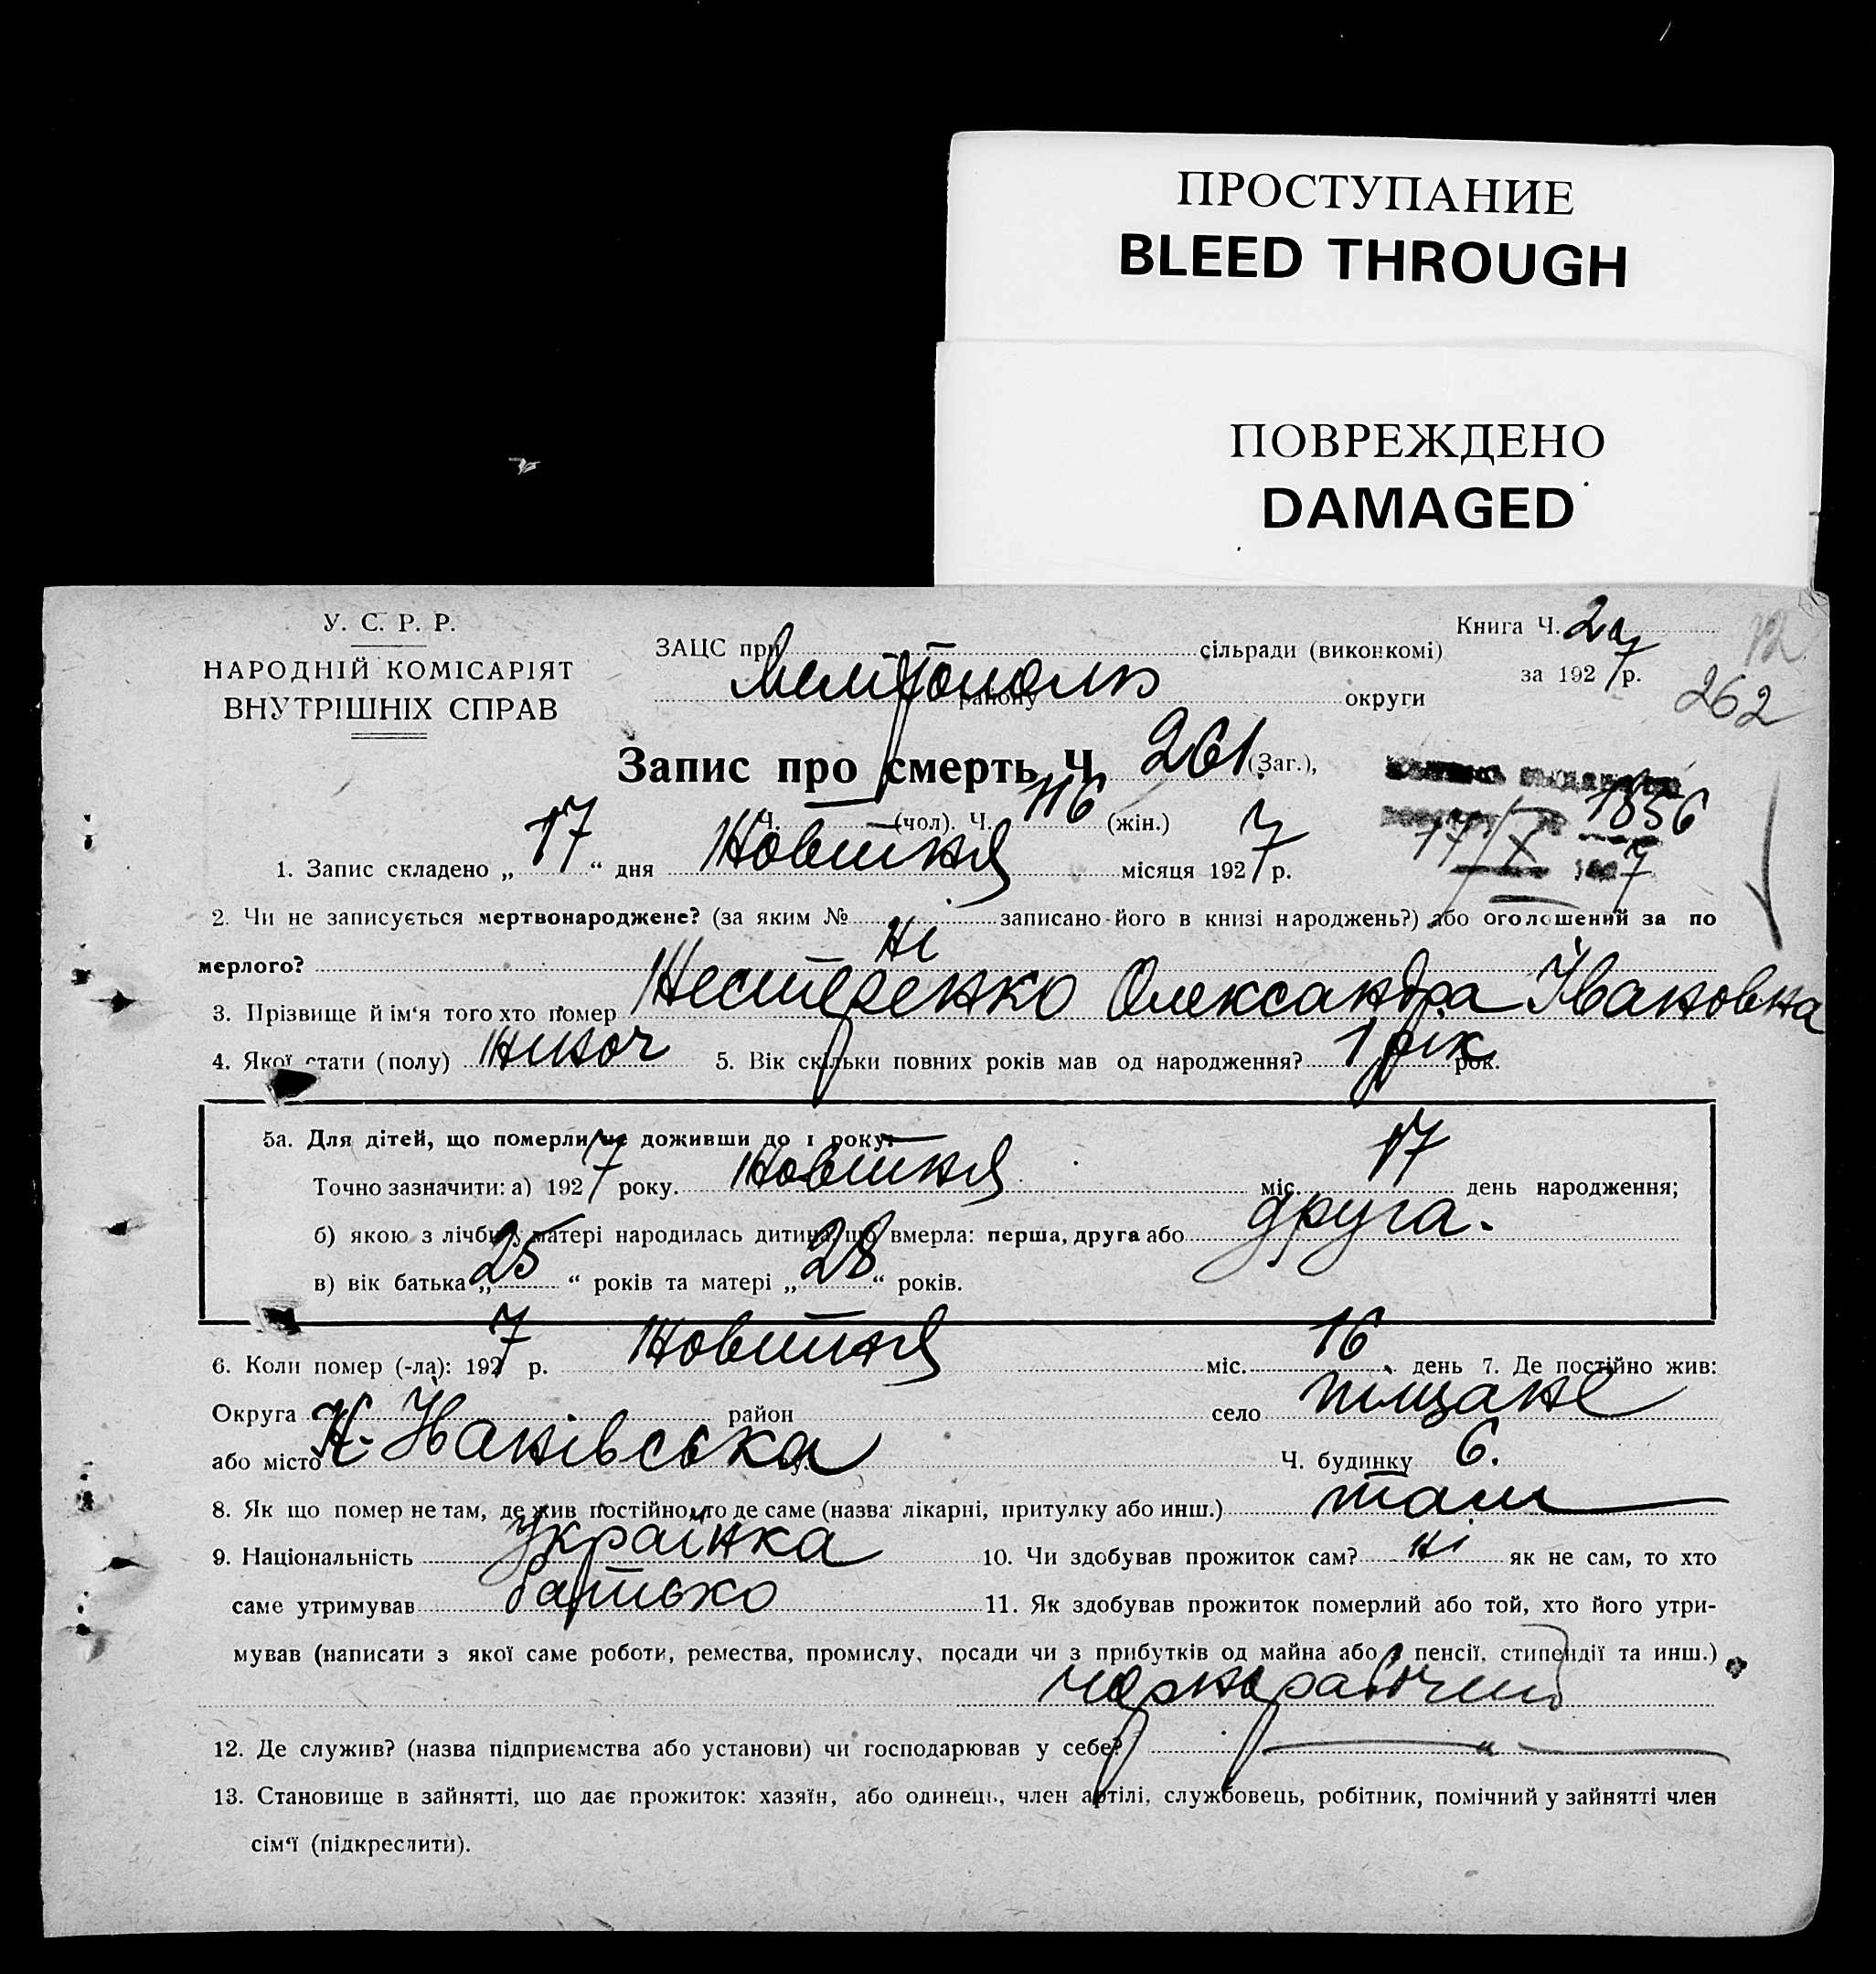 ПРОСТУПАНИЕ
BLEED THROUGH
ПОВРЕЖДЕНО
DAMAGED
У. С. Р. Р.
НАРОДНІЙ КОМІСАРІЯТ
ВНУТРІШНІХ СПРАВ
ЗАЦС при сільради (виконкомі)
Мелітополь району округи
Книга Ч. 2а
за 1927 р.
12
262
Запис про смерть Ч. 261 (Заг.),
Ч. — (чол). Ч. 116 (жін.)
1856
17/X 1927
1. Запис складено „ 17 “ дня Жовтня місяця 1927 р.
2. Чи не записується мертвонароджене? (за яким № записано його в книзі народжень?) або оголошений за по
мерлого? Ні
3. Прізвище й ім‘я того хто помер Нестеренко Олександра Івановна
4. Якої стати (полу) Жіноч 5. Вік скільки повних років мав од народження? 1 рік рок.
5а. Для дітей, що померли не доживши до 1 року:
Точно зазначити: а) 1927 року. Жовтня міс. 17 день народження;
б) якою з лічби у матері народилась дитина, що вмерла: перша, друга або друга.
в) вік батька „ 25 “ років та матері „ 28 “ років.
6. Коли помер (-ла): 1927 р. Жовтня міс. 16 день 7. Де постійно жив:
Округа район село Піщане
або місто Ч. будинку 6.
8. Як що помер не там, де жив постійно, то де саме (назва лікарні, притулку або инш.) там
9. Національність Українка 10. Чи здобував прожиток сам? ні як не сам, то хто
саме утримував батько 11. Як здобував прожиток померлий або той, хто його утри-
мував (написати з якої саме роботи, ремества, промислу, посади чи з прибутків од майна або з пенсії, стипендії та инш.)
чорнорабочий
12. Де служив? (назва підприємства або установи) чи господарював у себе? — „ —
13. Становище в зайнятті, що дає прожиток: хазяїн, або одинець, член артілі, службовець, робітник, помічний у зайнятті член
сім‘ї (підкреслити).